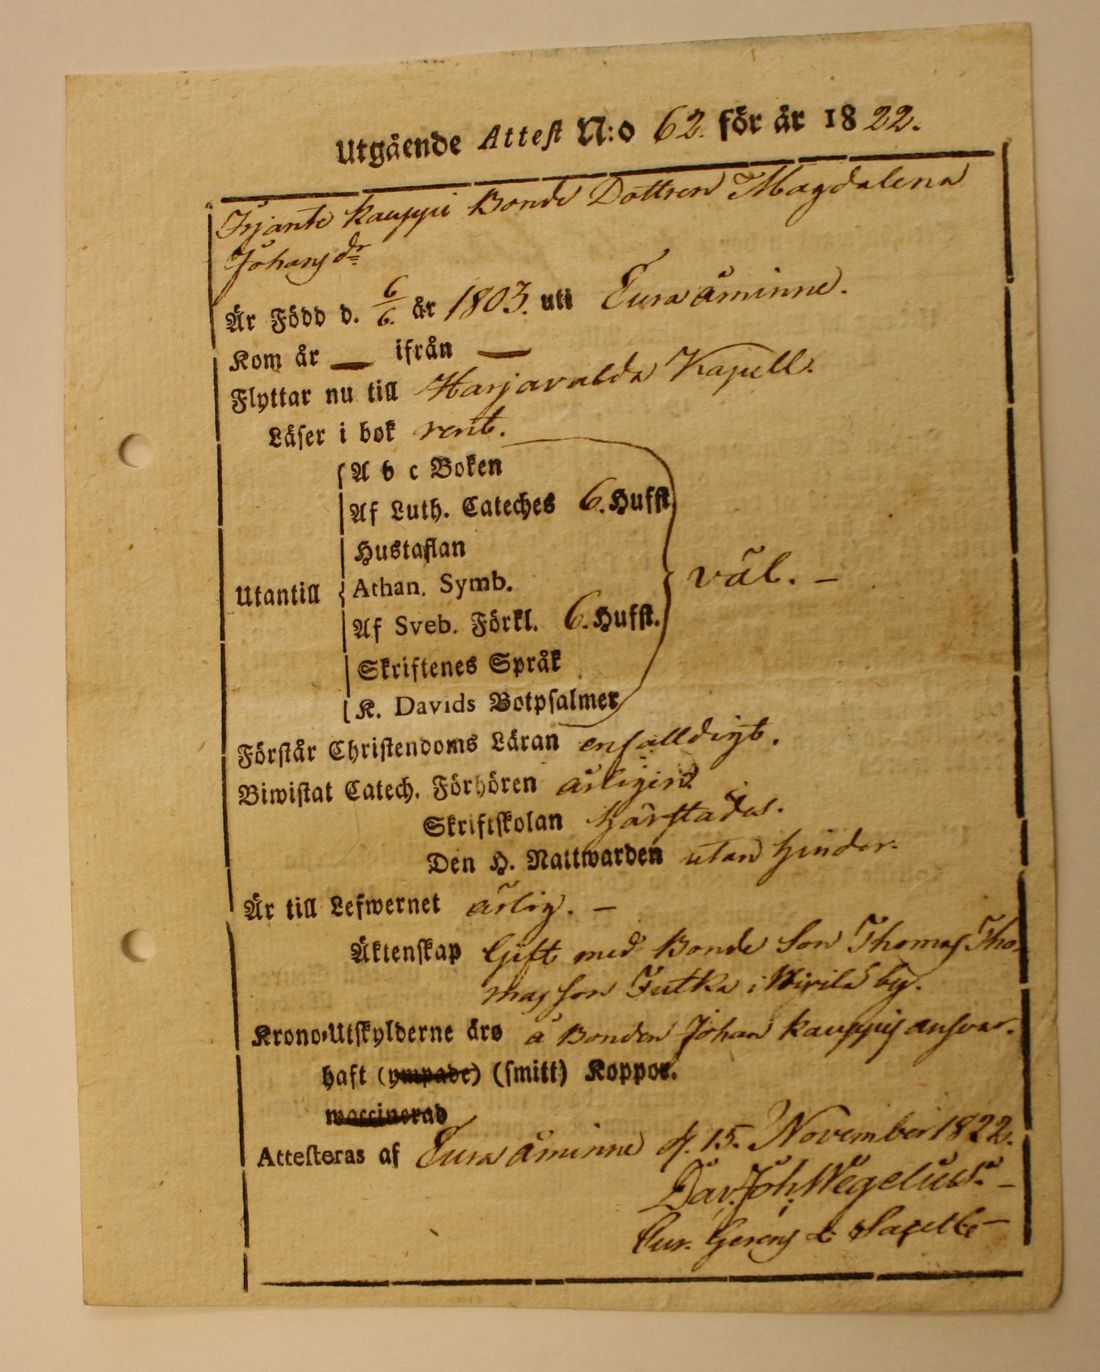 Utgående Attest N:o 62. för år 1822.
Irjante Kauppi Bonde Dottren Magdalena
Johansdr
Är Född d. 6/6. år 1803. uti Eura åminne.
Kom år — ifrån —
Flyttar nu till Harjavalda Kapell.
Läser i bok rent.
A b c Boken
Af Luth. Cateches 6. Hufst
Hustaflan
Utantill Athan. Symb. väl. —
Af Sveb. Förkl. 6. Hufst.
Skriftenes Språk
K. Davids Botpsalmer
Förstår Christendoms Läran enfalldigt.
Biwistat Catech. Förhören årligen
Skriftskolan härstädes.
Den H. Nattwarden utan hinder.
Är till Lefwernet ärlig. —
Äktenskap Gift med Bonde Son Thomas Tho-
mas son Jutka i Wirila by.
Krono-Utskylderne äro å Bonden Johan Kauppis answar.
haft (ympade) (smitt) Koppor.
waccinerad
Attesteras af Eura åminne d. 15. November 1822.
Dav. Joh. Wegelius. —
Cur. Gerens &